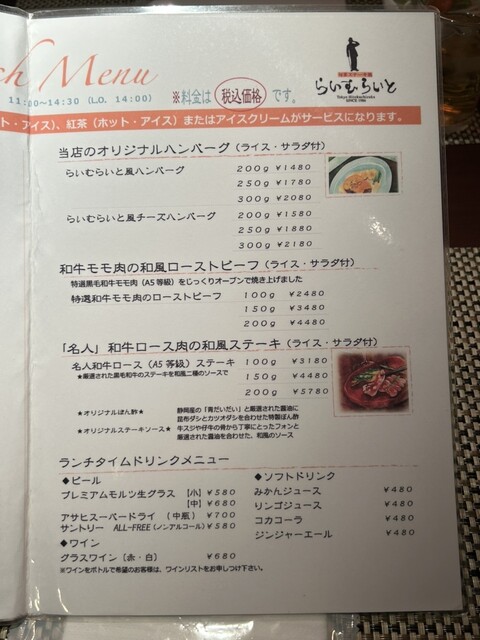 ch Menu
11:30~14:30 (L.O. 14:00)
※料金は 税込価格 です。
らいむらいと
SINCE 1986
ト・アイス)、紅茶(ホット・アイス)またはアイスクリームがサービスになります。
当店のオリジナルハンバーグ(ライス・サラダ付)
らいむらいと風ハンバーグ 200g ¥1480
250g ¥1780
300g ¥2080
らいむらいと風チーズハンバーグ 200g ¥1580
250g ¥1880
300g ¥2180
和牛モモ肉の和風ローストビーフ(ライス・サラダ付)
特選黒毛和牛モモ肉(A5等級)をじっくりオーブンで焼き上げました
特選和牛モモ肉のローストビーフ 100g ¥2480
150g ¥3480
200g ¥4480
「名人」和牛ロース肉の和風ステーキ(ライス・サラダ付)
名人和牛ロース(A5等級)ステーキ 100g ¥3180
★厳選された黒毛和牛のステーキを和風二種のソースで 150g ¥4480
200g ¥5780
★オリジナルぽん酢★ 静岡産の「青だいだい」と厳選された醤油に
昆布ダシとカツオダシを合わせた特製ぽん酢
★オリジナルステーキソース★ 牛スジや仔牛の骨から丁寧にとったフォンと
厳選された醤油を合わせた、和風のソース
ランチタイムドリンクメニュー
◆ビール
プレミアムモルツ生グラス 【小】¥580
【中】¥680
アサヒスーパードライ (中瓶) ¥700
サントリー ALL-FREE(ノンアルコール)¥580
◆ワイン
グラスワイン(赤・白) ¥680
※ワインをボトルで希望のお客様は、ワインリストをお申しつけ下さい。
◆ソフトドリンク
みかんジュース ¥480
リンゴジュース ¥480
コカコーラ ¥480
ジンジャーエール ¥480